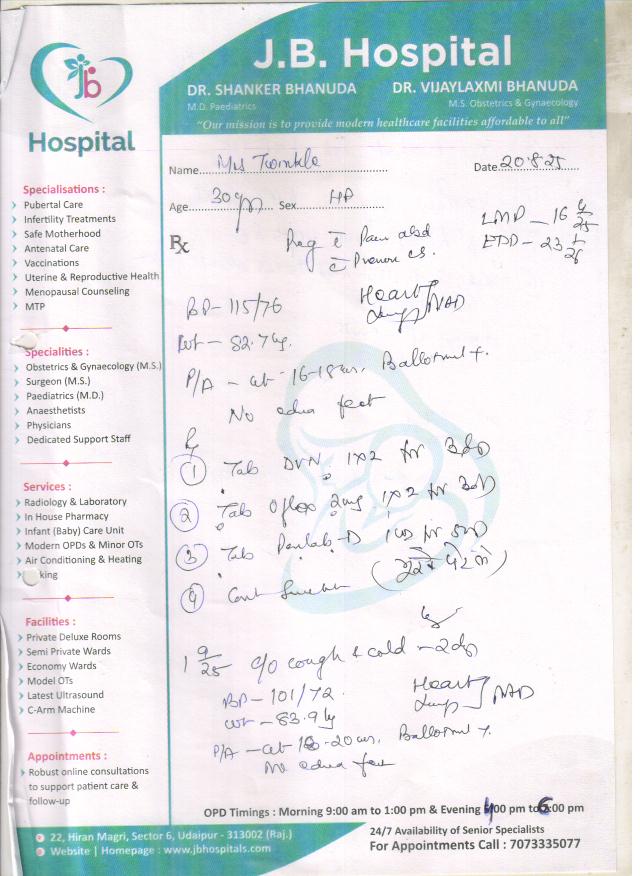 J.B. Hospital
DR. SHANKER BHANUDA
M.D. Paediatrics
DR. VIJAYLAXMI BHANUDA
M.S. Obstetrics & Gynaecology
"Our mission is to provide modern healthcare facilities affordable to all"
jb
Hospital
Name Mrs Twinkle
Date 20.8.25
Age 30 Sex
LMP - 16 4/25
EDD - 23 1/26
Rx
Pain abd
CS.
BP - 115/76
Heart
Lungs NAD
wt - 82.7 kg.
P/A - ut - 16-18 Ballotment +.
No feet
Rx
1 Tab DVN 1x2 for 3d
2 Tab Oflox 1x2 for 3d
3 Tab -D 1 OD for
4
1 9/25 c/o cough & cold - 2d
BP - 101/72.
Heart
Lungs NAD
wt - 83.9 kg
P/A - ut 18-20 Ballotment +.
No feet
Specialisations :
Pubertal Care
Infertility Treatments
Safe Motherhood
Antenatal Care
Vaccinations
Uterine & Reproductive Health
Menopausal Counseling
MTP
Specialities :
Obstetrics & Gynaecology (M.S.)
Surgeon (M.S.)
Paediatrics (M.D.)
Anaesthetists
Physicians
Dedicated Support Staff
Services :
Radiology & Laboratory
In House Pharmacy
Infant (Baby) Care Unit
Modern OPDs & Minor OTs
Air Conditioning & Heating
king
Facilities :
Private Deluxe Rooms
Semi Private Wards
Economy Wards
Model OTs
Latest Ultrasound
C-Arm Machine
Appointments :
Robust online consultations
to support patient care &
follow-up
OPD Timings : Morning 9:00 am to 1:00 pm & Evening 4:00 pm to 6:00 pm
22, Hiran Magri, Sector 6, Udaipur - 313002 (Raj.)
Website | Homepage : www.jbhospitals.com
24/7 Availability of Senior Specialists
For Appointments Call : 7073335077